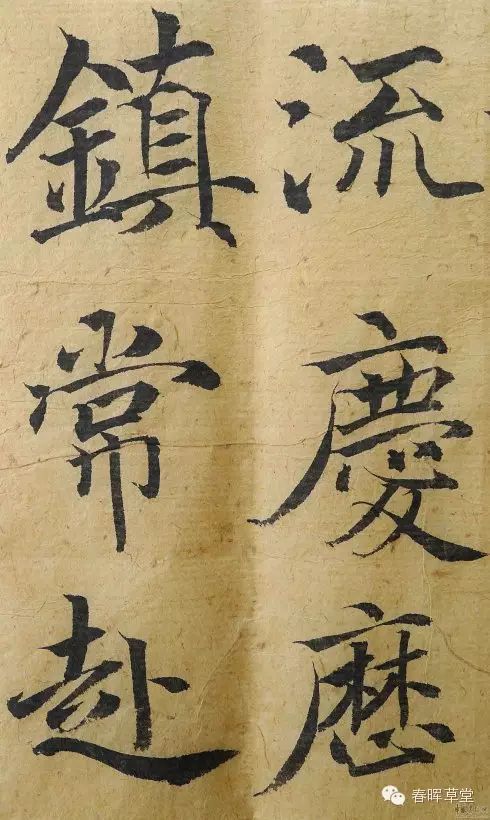 流慶歷
鎮常赴
春晖草堂